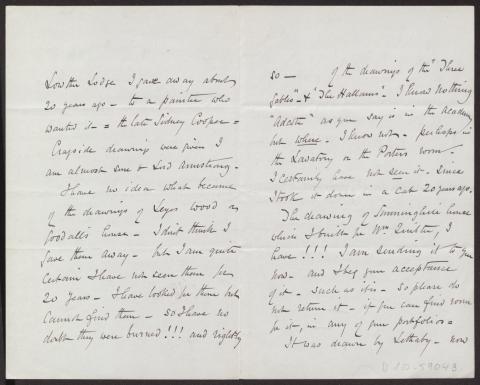 Lowther Lodge I gave away about
20 years ago — to a painter who
wanted it — = the late Sidney Cooper =
Cragside drawings were given I
am almost sure to Lord Armstrong.
I have no idea what became
of the drawings of Leyes Wood or
Goodall's house — I don't think I
gave them away — but I am quite
certain I have not seen them for
20 years — I have looked for them but
cannot find them — so I have no
doubt they were burned!!! and rightly
so — of the drawings of the "Three
Gables" & "The Hallams" — I know nothing
"Adcote" as you say is in the Academy
but where — I know not — perhaps in
the Lavatory or the Porters room —
I certainly have not seen it — since
I took it down in a cab 20 years ago.
The drawing of Sunninghill house
which I built for Wm
I
have!!! I am sending it to you
now — and beg your acceptance
of it — such as it is — so please do
not return it — if you can find room
for it, in any of your portfolios =
It was drawn by Lethaby — now